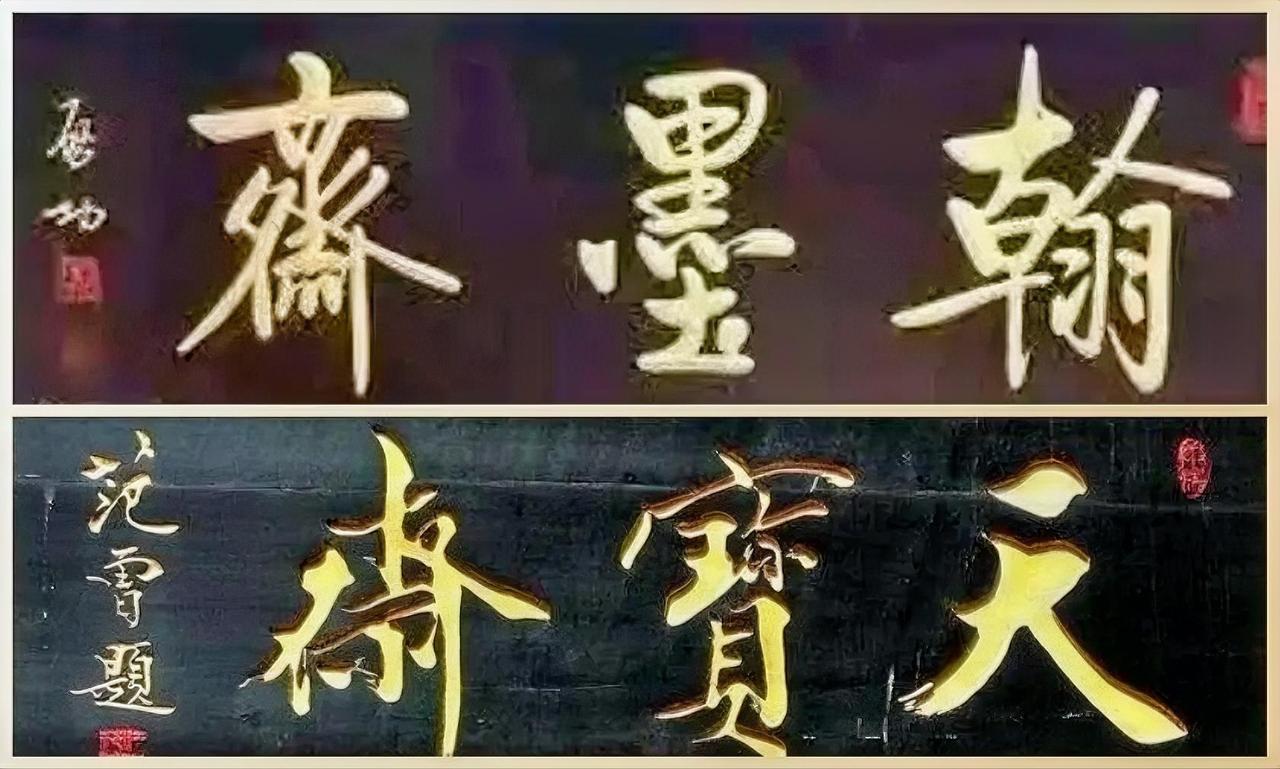 翰墨齋
启功
天寶齋
范曾題